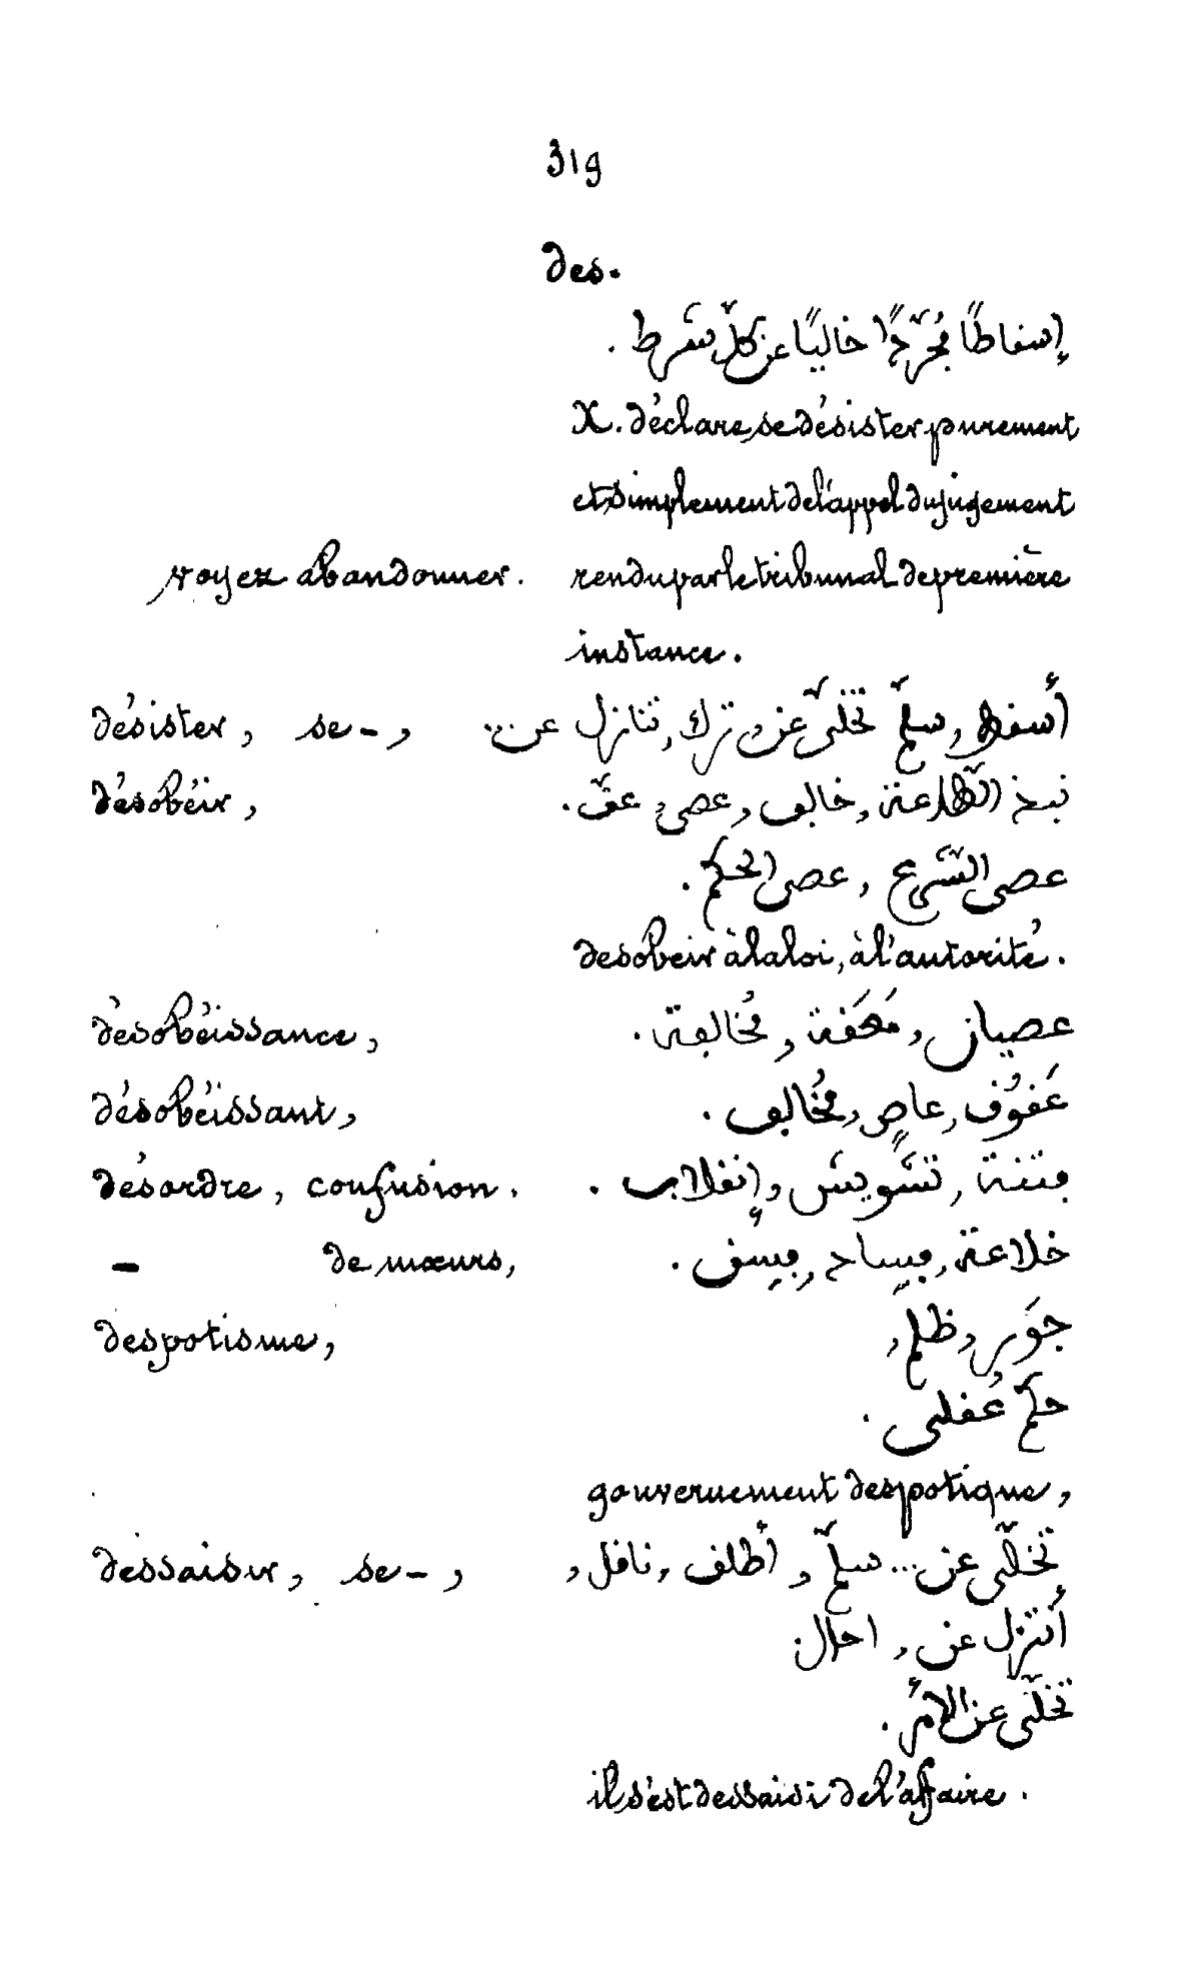 319
des.
إسقاطًا مُجرّحًا خاليًا عن كلّ شرط .
X. déclare se désister purement
et simplement de l'appel du jugement
voyez abandonner. rendu par le tribunal de première
instance.
désister, se-, أسقط, سلّم تخلّى عن, ترك, تنازل عن...
désobéir, نبذ الطاعة, خالف, عصى, عقّ.
عصى الشّرع, عصى الحكم.
desobeir à la loi, à l'autorité.
désobéissance, عصيان, مخالفة.
désobéissant, عَقوُف, عاصٍ, مُخالف.
désordre, confusion. فتنة, تشويش, إنقلاب.
- de mœurs, خلاعة, فساد, فسق.
despotisme, جوَر, ظلم,
حكم عُقلى.
gouvernement despotique,
dessaisir, se-, تخلّى عن... سلّم, أطلف, ناقل,
أنتزل عن, احال.
تخلّى عن الأمر.
il s'est dessaisi de l'affaire.